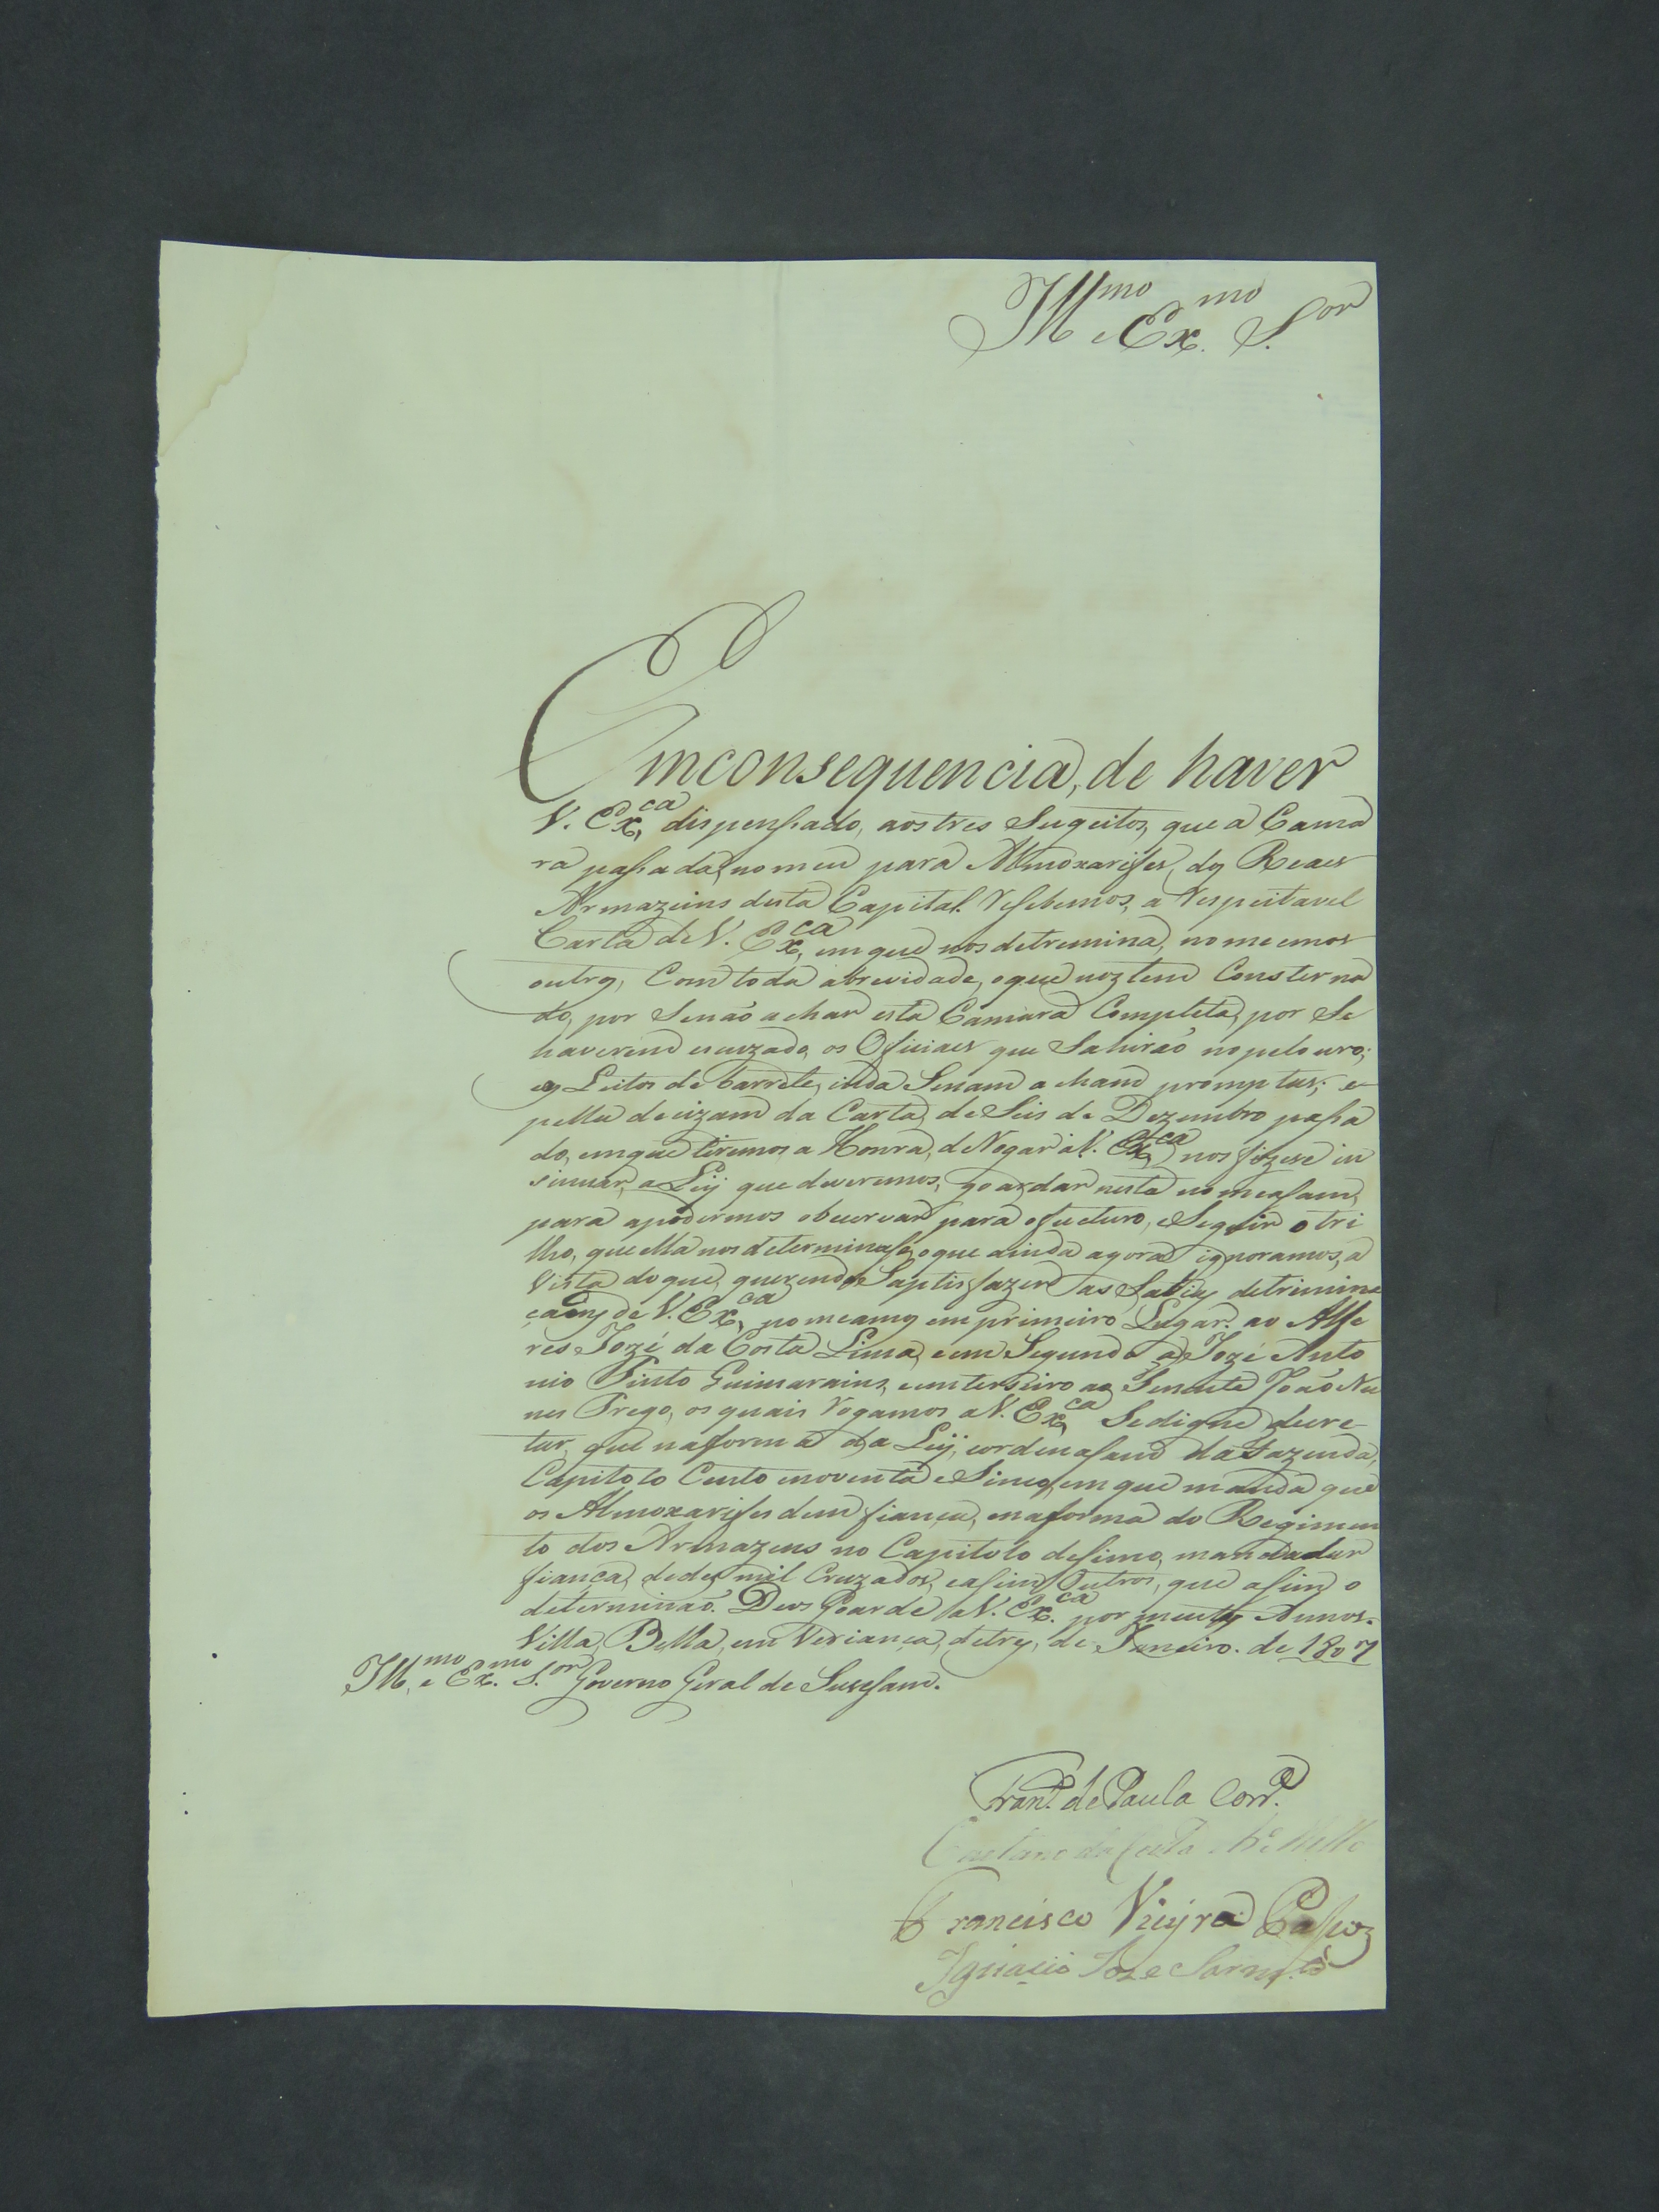 Ill.mo e Ex.mo S.or
Em consequencia, de haver
V. Ex.ca dispensado, aos tres Sugeitos, que a Cama
ra passada, nomeu para Almoxarifes, dos Reaes
Armazeins desta Capital. Resebemos, a respeitavel
Carta de V. Ex.ca em que nos detremina, nomeemos
outros, Com toda abrevidade, o que noz tem Consterna
do, por Senão achar esta Camara Completa, por Se
haverem escuzado, os Oficiaes que Sahirão no pelouro;
e os Leitos de barrete, inda Senam acham promptos; e
pella decizam da Carta, de Seis de Dezembro passa
do, em que tivemos a Honra, de Rogar a V. Ex.ca nos fizese in
sinuar, a Leÿ que deveremos, goardar nesta nomeasam,
para apodermos observar para o fucturo, e Seguir o tri
lho, que ella nos determinase, o que ainda agora ignoramos, a
Vista do que, querendo Saptisfazer as Sabias detremina
çaens de V. Ex.ca nomeamos em primeiro Lugar. ao Alfe
res Jozé da Costa Lima, e em Segundo a Jozé Anto
nio Pinto Guimarains, e em terseiro ao Tenente João Nu
nes Prego, os quais Rogamos a V. Ex.ca Se digne decre
tar, que na forma da Leÿ, e ordenasam da Fazenda,
Capitolo Cento e noventa e Sinco, em que manda que
os Almoxarifes dem fiança, e na forma do Regimen
to dos Armazens no Capitolo desimo, manda dar
fiança, de des mil Cruzados, e asim Outros, que asim o
determinaõ. Deos Goarde a V. Ex.ca por muitos Annos.
Villa Bella, em Verianca, de tres, de Janeiro. de 1807
Ill.mo e Ex.mo S.or Governo Geral de Susesam.
Fran.co de Paula Corr.a
Caetano da Costa de Mello
Francisco Vieyra Cassoz
Ignacio Joze Sarm.to